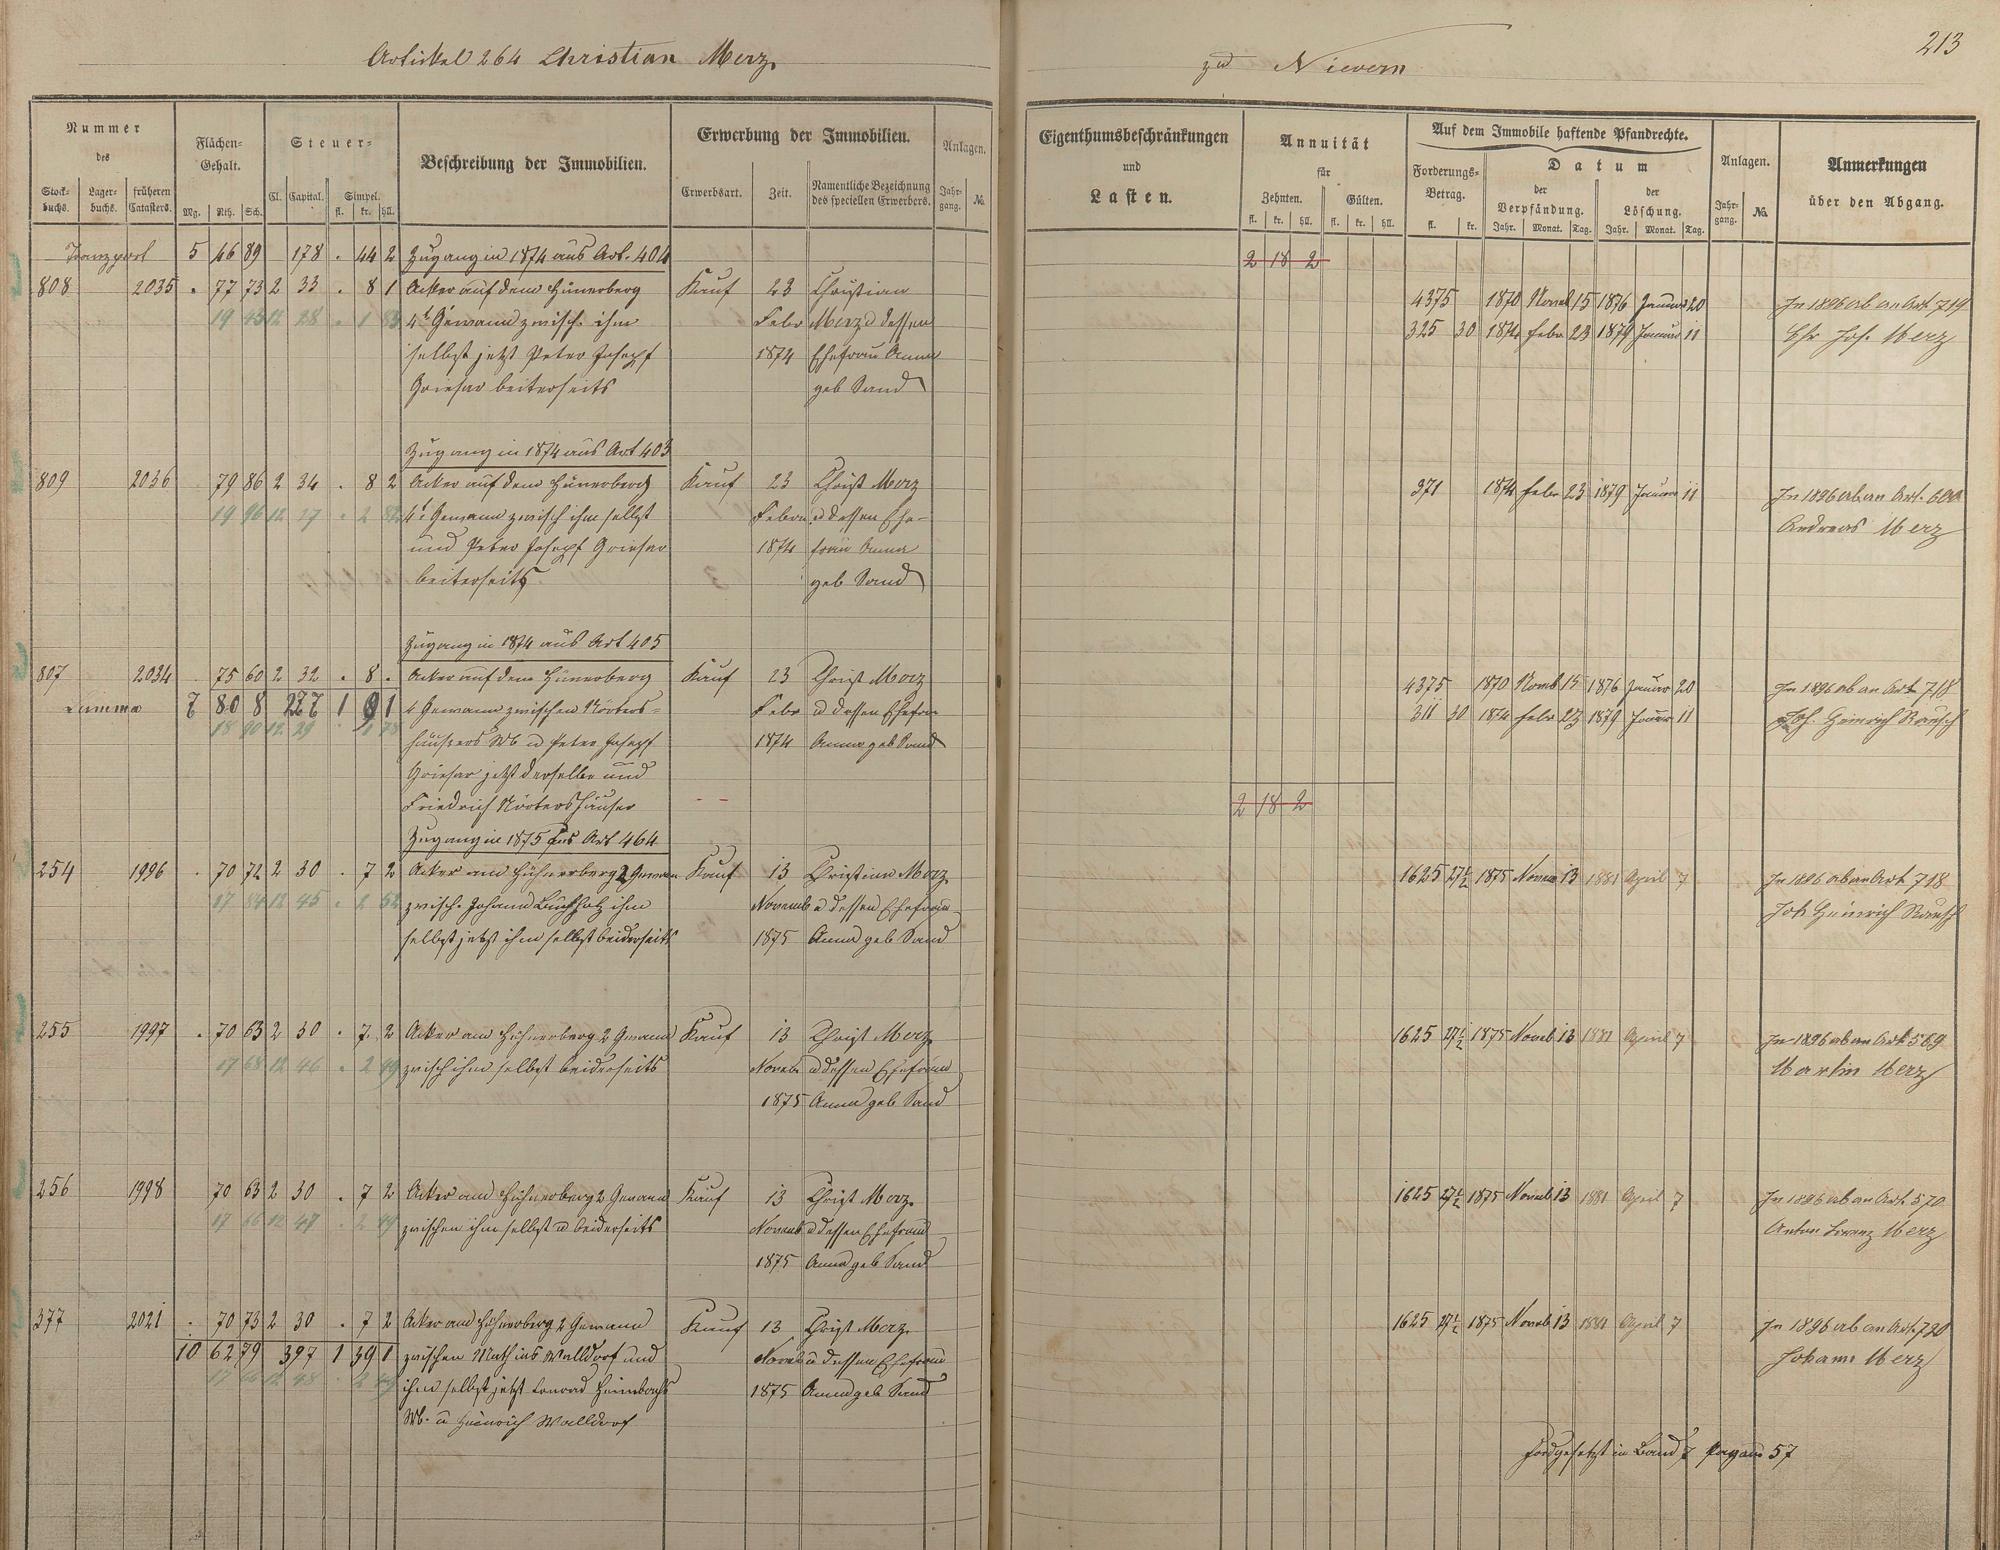 Artikel 264 Christian Merz
zu Nievern
213
Nummer des
Stockbuchs. Lagerbuchs. früheren Catasters.
Flächen-Gehalt.
Mg. Rth. Sch.
Steuer-
Cl. Capital. Simpel.
fl. kr. hll.
Beschreibung der Immobilien.
Erwerbung der Immobilien.
Erwerbsart. Zeit. Namentliche Bezeichnung des speciellen Erwerbers.
Anlagen.
Jahrgang. No.
Eigenthumsbeschränkungen
und
Lasten.
Annuität
für
Zehnten. Gülten.
fl. kr. hll. fl. kr. hll.
Auf dem Immobile haftende Pfandrechte.
Forderungs-Betrag.
fl. kr.
Datum
der Verpfändung. der Löschung.
Jahr. Monat. Tag. Jahr. Monat. Tag.
Anlagen.
Jahrgang. No.
Anmerkungen
über den Abgang.
Transport 5 46 89 178 . 44 2 Zugang in 1874 aus Art. 404
2 18 2
808 2035 . 77 73 2 33 . 8 1 Acker auf dem Hünerberg Kauf 23 Christian
4375 1870 Novb 15 1876 Januar 20 In 1896 ab an Art. 719
4t Gewann zwisch. ihm Febr Merz u dessen
325 30 1874 Febr 23 1879 Januar 11 Chr Jos. Merz
selbst jetzt Peter Josepf 1874 Ehefrau Anna
Griesar beiterseits geb Sand
Zugang in 1874 aus Art 403
809 2036 79 86 2 34 . 8 2 Acker auf dem Hünerberg Kauf 23 Christ Merz
371 1874 Febr 23 1879 Januar 11 In 1896 ab an Art.
4t Gewann zwisch ihm selbst Febr u dessen Ehe-
Andreas Merz
und Peter Josepf Griesar 1874 frau Anna
beiterseits geb Sand
Zugang in 1874 aus Art 405
807 2034 75 60 2 32 . 8 . Acker auf dem Hünerberg Kauf 23 Christ Merz
4375 1870 Novmb 15 1876 Januar 20 In 1896 ab an Art 718
Summa 7 80 8 277 1 9 1 4 Gewann zwischen Nörters- Febr u dessen Ehefrau
311 30 1874 Febr 23 1879 Januar 11 Joh. Heinrich Rausch
häusers Wb u Peter Josepf 1874 Anna geb Sand
Griesar jetzt derselbe und
Friedrich Nörtershäuser
2 18 2
Zugang in 1875 aus Art 464
254 1996 . 70 72 2 30 . 7 2 Acker am Hühnerberg 2 Gewann Kauf 13 Christian Merz
1625 27½ 1875 Novem 13 1881 April 7 In 1896 ab an Art. 718
zwisch. Johann Buchholz ihm Novemb u dessen Ehefrau
Joh Heinrich Rausch
selbst jetzt ihm selbst beiderseits 1875 Anna geb Sand
255 1997 . 70 63 2 30 . 7 2 Acker am Hühnerberg 2 Gewann Kauf 13 Christ Merz
1625 27½ 1875 Novemb 13 1881 April 7 In 1896 ab an Art 569
zwisch ihm selbst beiderseits Novebr u dessen Ehefrau
Martin Merz
1875 Anna geb Sand
256 1998 70 63 2 30 . 7 2 Acker am Hühnerberg 2 Gewann Kauf 13 Christ Merz
1625 27½ 1875 Novemb 13 1881 April 7 In 1896 ab an Art. 570
zwischen ihm selbst u beiderseits Novemb u dessen Ehefrau
Anton Lorenz Merz
1875 Anna geb Sand
377 2021 . 70 73 2 30 . 7 2 Acker am Hühnerberg 2 Gewann Kauf 13 Christ Merz
1625 27½ 1875 Novemb 13 1881 April 7 In 1896 ab an Art. 720
10 62 79 397 1 39 1 zwischen Mathias Walldorf und Novemb u dessen Ehefrau
Johann Merz
ihm selbst jetzt Konrad Heimbachs 1875 Anna geb Sand
Wb. u Heinrich Walldorf
Fordgesetzt in Band 7 pagana 57